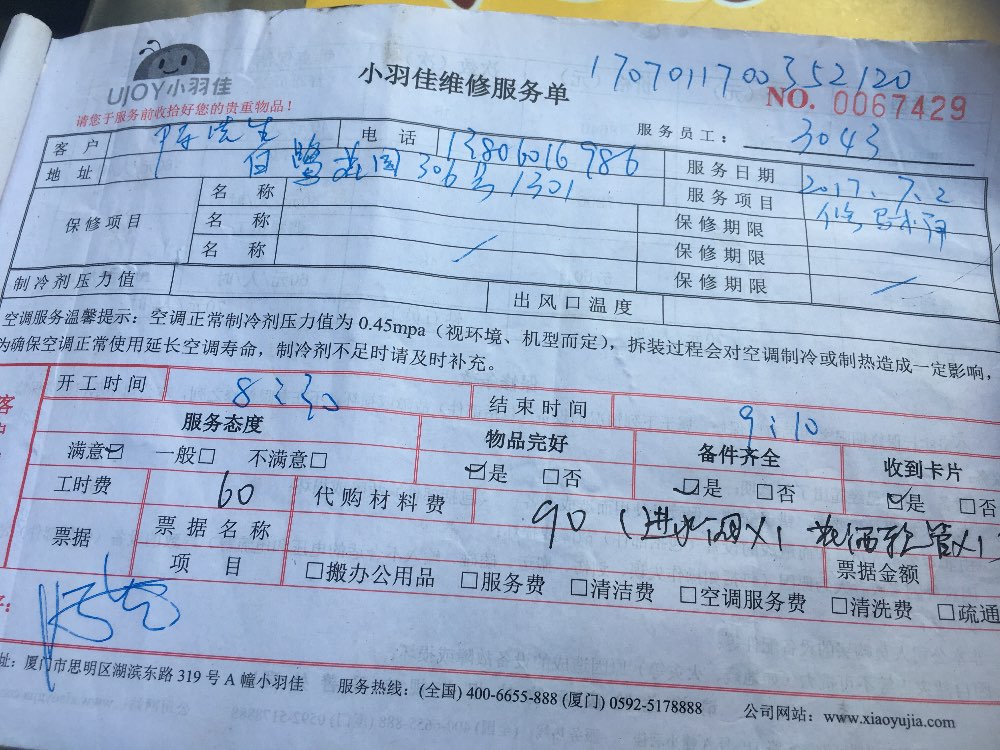 UJOY小羽佳
小羽佳维修服务单
1707011700352120
NO. 0067429
请您于服务前收拾好您的贵重物品！
服务员工： 3043
客户 陈先生 电话 13806016986 服务日期 2017.7.2
地址 白鹭花园306号1301 服务项目 修马桶
保修项目 名称 保修期限
名称 保修期限
名称 保修期限
制冷剂压力值 出风口温度
空调服务温馨提示：空调正常制冷剂压力值为 0.45mpa（视环境、机型而定），拆装过程会对空调制冷或制热造成一定影响，
为确保空调正常使用延长空调寿命，制冷剂不足时请及时补充。
开工时间 8:30 结束时间 9:10
服务态度 物品完好 备件齐全 收到卡片
满意☑ 一般□ 不满意□ ☑是 □否 ☑是 □否 ☑是 □否
工时费 60 代购材料费 90（进水阀X1 花洒软管X1
票据 票据名称 票据金额
项目 □搬办公用品 □服务费 □清洁费 □空调服务费 □清洗费 □疏通
址：厦门市思明区湖滨东路 319 号 A 幢小羽佳 服务热线：(全国) 400-6655-888 (厦门) 0592-5178888 公司网站：www.xiaoyujia.com